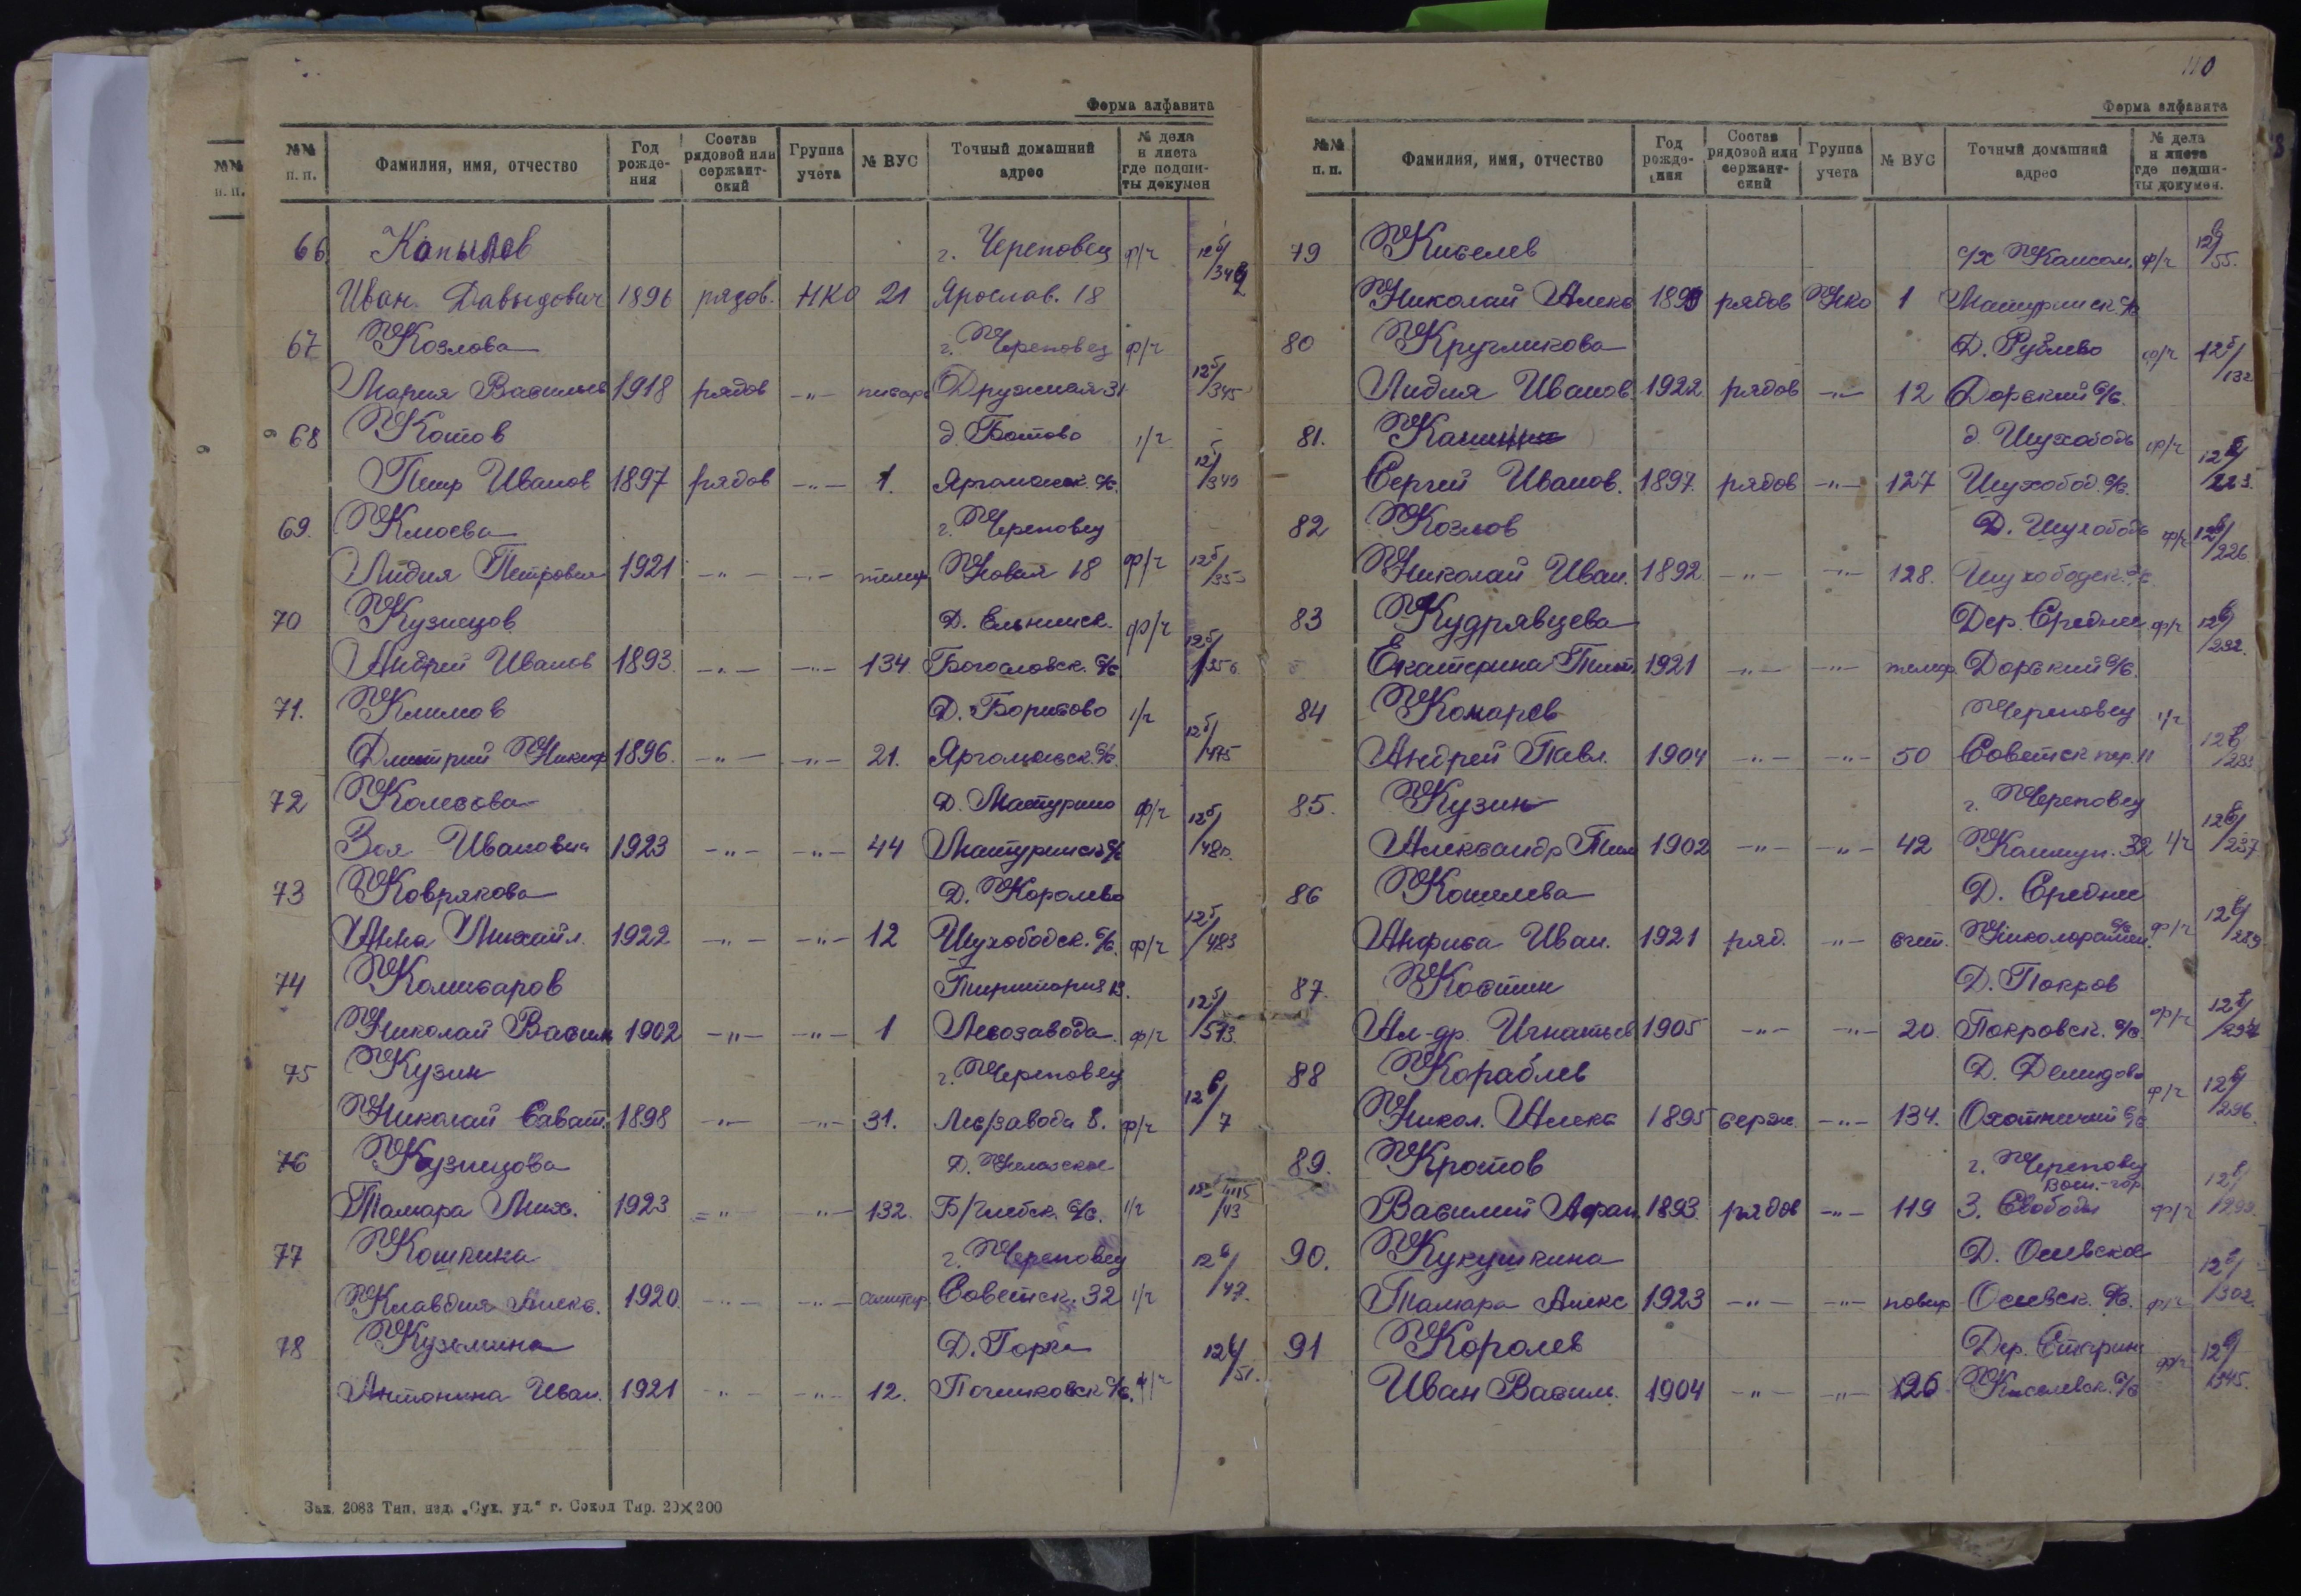 Форма алфавита
№№ п. п. Фамилия, имя, отчество Год рождения Состав рядовой или сержантский Группа учета № ВУС Точный домашний адрес № дела и листа где подшиты докумен
66 Копылов г. Череповец ф/ч
Иван Давыдович 1896 рядов. НКО 21 Ярослав. 18
67 Козлова г. Череповец ф/ч
Мария Васильев 1918 рядов -„- писарь Дружная 31 12б/345
68 Котов д. Ботово 1/ч
Петр Иванов 1897 рядов -„- 1. 12б/349
69. Клюева г. Череповец
Лидия Петровна 1921 -„- -„- телеф Новая 18 ф/ч
70 Кузнецов Д. ф/ч
Андрей Иванов 1893. -„- -„- 134. Богословск. с/с.
71. Климов Д. Борисово 1/ч
Дмитрий Никиф 1896. -„- -„- 21. Яргомжск. с/с. 12б/475
72 Колесова Д. Матурино ф/ч
Зоя Ивановна 1923 -„- -„- 44 Матуринск с/с 12б/480.
73 Коврякова Д. Королево
Анна Михайл. 1922 -„- -„- 12 Шухободск. с/с. ф/ч 12б/483
74 Комиссаров Территория
Николай Васил 1902 -„- -„- 1 Лесозавода ф/ч
75 Кузин г. Череповец
Николай Сават. 1898 -„- -„- 31. Лес/завода 8. ф/ч 12в/7
76 Кузнецова Д.
Тамара Мих. 1923 -„- -„- 132. с/с. 1/ч
77 Кошкина г. Череповец
Клавдия Алекс. 1920. -„- -„- Советск. 32 1/ч 12в/47.
78 Кузьмина Д. Горка
Антонина Иван. 1921 -„- -„- 12. Починковск с/с. ф/ч 12в/51.
Зак. 2083 Тип. изд. „Сух. уд." г. Сокол Тир. 20×200
110
Форма алфавита
№№ п. п. Фамилия, имя, отчество Год рождения Состав рядовой или сержантский Группа учета № ВУС Точный домашний адрес № дела и листа где подшиты докумен.
79 Киселев с/х ф/ч 12в/55.
Николай Алекс рядов Нко 1 Матуринск. с/с
80 Кругликова Д. Рублево ф/ч
Лидия Иванов 1922 рядов -„- 12 Дорский с/с. 12б/132
81. д. Шухободь ф/ч
Сергей Иванов. 1897 рядов -„- 127 Шухобод. с/с. 12в/223.
82 Козлов Д. Шухободь ф/ч 12в/226
Николай Иван. 1892 -„- -„- 128. Шухободск. с/с.
83 Кудрявцева Дер. Средние ф/ч 12в/232.
Екатерина 1921 -„- -„- телеф. Дорский с/с.
84 Комаров Череповец 1/ч
Андрей Павл. 1904 -„- -„- 50 Советск пер. 11
85. Кузин г. Череповец
Александр 1902 -„- -„- 42 Коммун. 32 1/ч 12в/237
86 Кошелева Д. Средние
Анфиса Иван. 1921 ряд. -„- счет. Николорамен. с/с ф/ч
87. Костин Д. Покров
Ал-др. Игнатьев 1905 -„- -„- 20. Покровск. с/с. ф/ч
88 Кораблев Д. Демидово ф/ч
Никол. Алекс 1895 серж. -„- 134. Охотничий с/с 12в/296.
89. Кротов г. Череповец
Василий Афан. 1893. рядов -„- 119 З. Свободы ф/ч
90. Кукушкина Д. Осевское
Тамара Алекс 1923 -„- -„- повар Осевск. с/с. ф/ч 12в/302.
91 Королев Дер. ф/ч
Иван Васил. 1904 -„- -„- 126 Киселевск. с/с 12в/345.